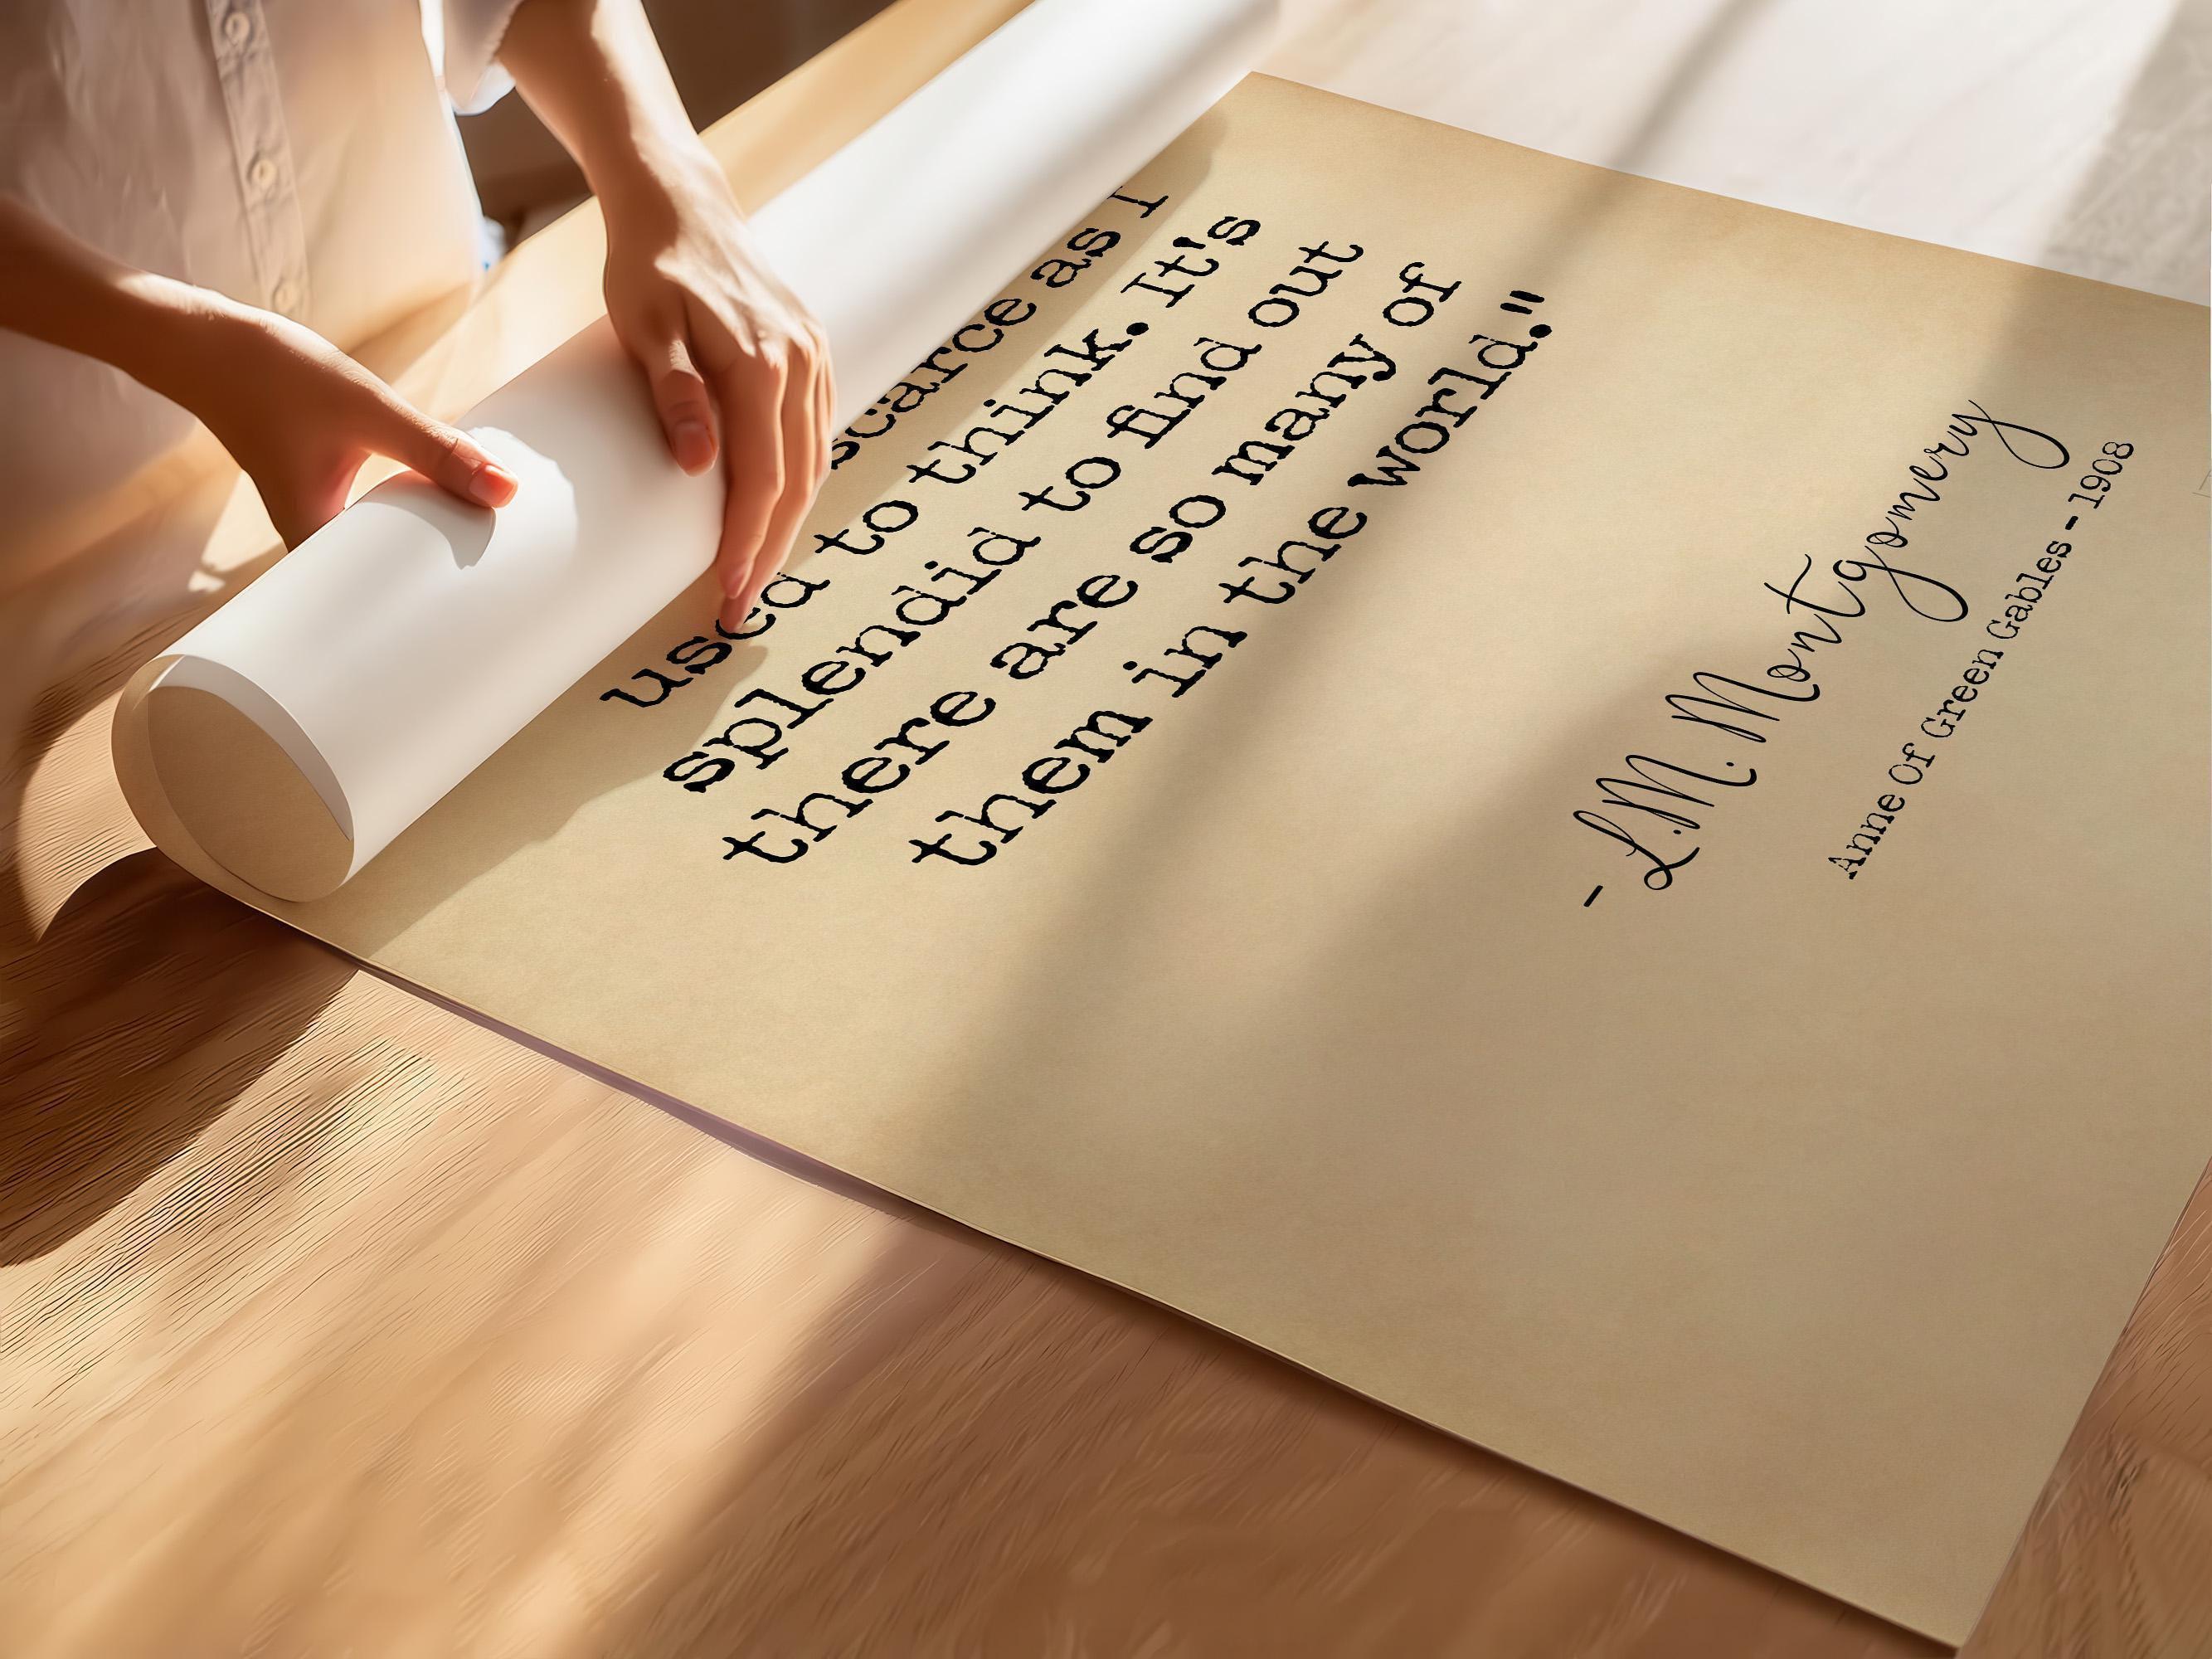 scarce as I
used to think. It's
splendid to find out
there are so many of
them in the world."
- L.M. Montgomery
Anne Of Green Gables - 1908